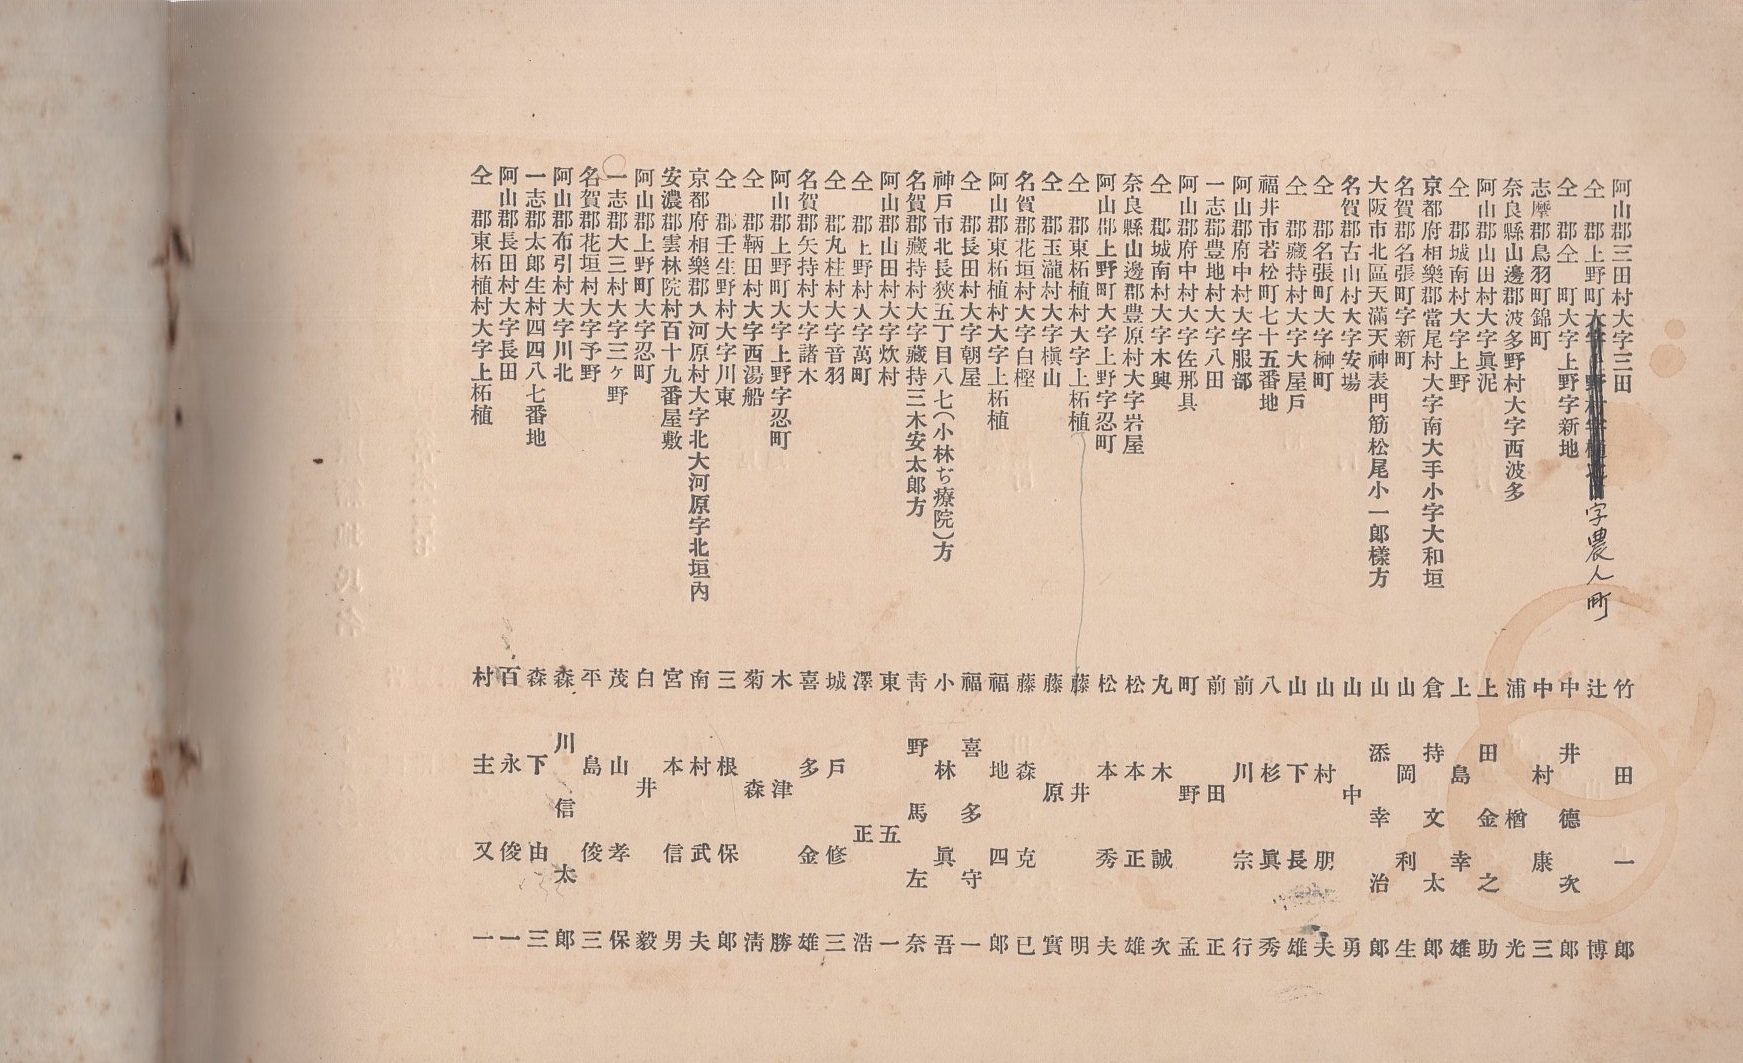 阿山郡三田村大字三田 竹田一郎
仝 郡上野町字農人町 辻博
仝 郡仝 町大字上野字新地 中井德次郎
志摩郡鳥羽町錦町 中村康三
奈良縣山邊郡波多野村大字西波多 浦楢光
阿山郡山田村大字眞泥 上田金之助
仝 郡城南村大字上野 上島幸雄
京都府相樂郡當尾村大字南大手小字大和垣 倉持文太郎
名賀郡名張町字新町 山岡利生
大阪市北區天滿天神表門筋松尾小一郎樣方 山添幸治郎
名賀郡古山村大字安場 山中勇
仝 郡名張町大字榊町 山村朋夫
仝 郡藏持村大字大屋戸 山下長雄
福井市若松町七十五番地 八杉眞秀
阿山郡府中村大字服部 前川宗行
一志郡豊地村大字八田 前田正
阿山郡府中村大字佐那具 町野孟
仝 郡城南村大字木興 丸木誠次
奈良縣山邊郡豊原村大字岩屋 松本正雄
阿山郡上野町大字上野字忍町 松本秀夫
仝 郡東柘植村大字上柘植 藤井明
仝 郡玉瀧村大字槇山 藤原實
名賀郡花垣村大字白樫 藤森克已
阿山郡東柘植村大字上柘植 福地四郎
仝 郡長田村大字朝屋 福喜多守一
神戸市北長狹五丁目八七(小林ぢ療院)方 小林眞吾
名賀郡藏持村大字藏持三木安太郎方 靑野馬左奈
阿山郡山田村大字炊村 東五一
仝 郡上野村大字萬町 澤正浩
仝 郡丸柱村大字音羽 城戸修三
名賀郡矢持村大字諸木 喜多金雄
阿山郡上野町大字上野字忍町 木津勝
仝 郡鞆田村大字西湯船 菊森淸
仝 郡壬生野村大字川東 三根保郎
京都府相樂郡大河原村大字北大河原字北垣内 南村武夫
安濃郡雲林院村百十九番屋敷 宮本信男
阿山郡上野町大字忍町 白井毅
一志郡大三村大字三ヶ野 茂山孝保
名賀郡花垣村大字予野 平島俊三
阿山郡布引村大字川北 森川信太郎
一志郡太郎生村四四八七番地 森下由三
阿山郡長田村大字長田 百永俊一
仝 郡東柘植村大字上柘植 村主又一